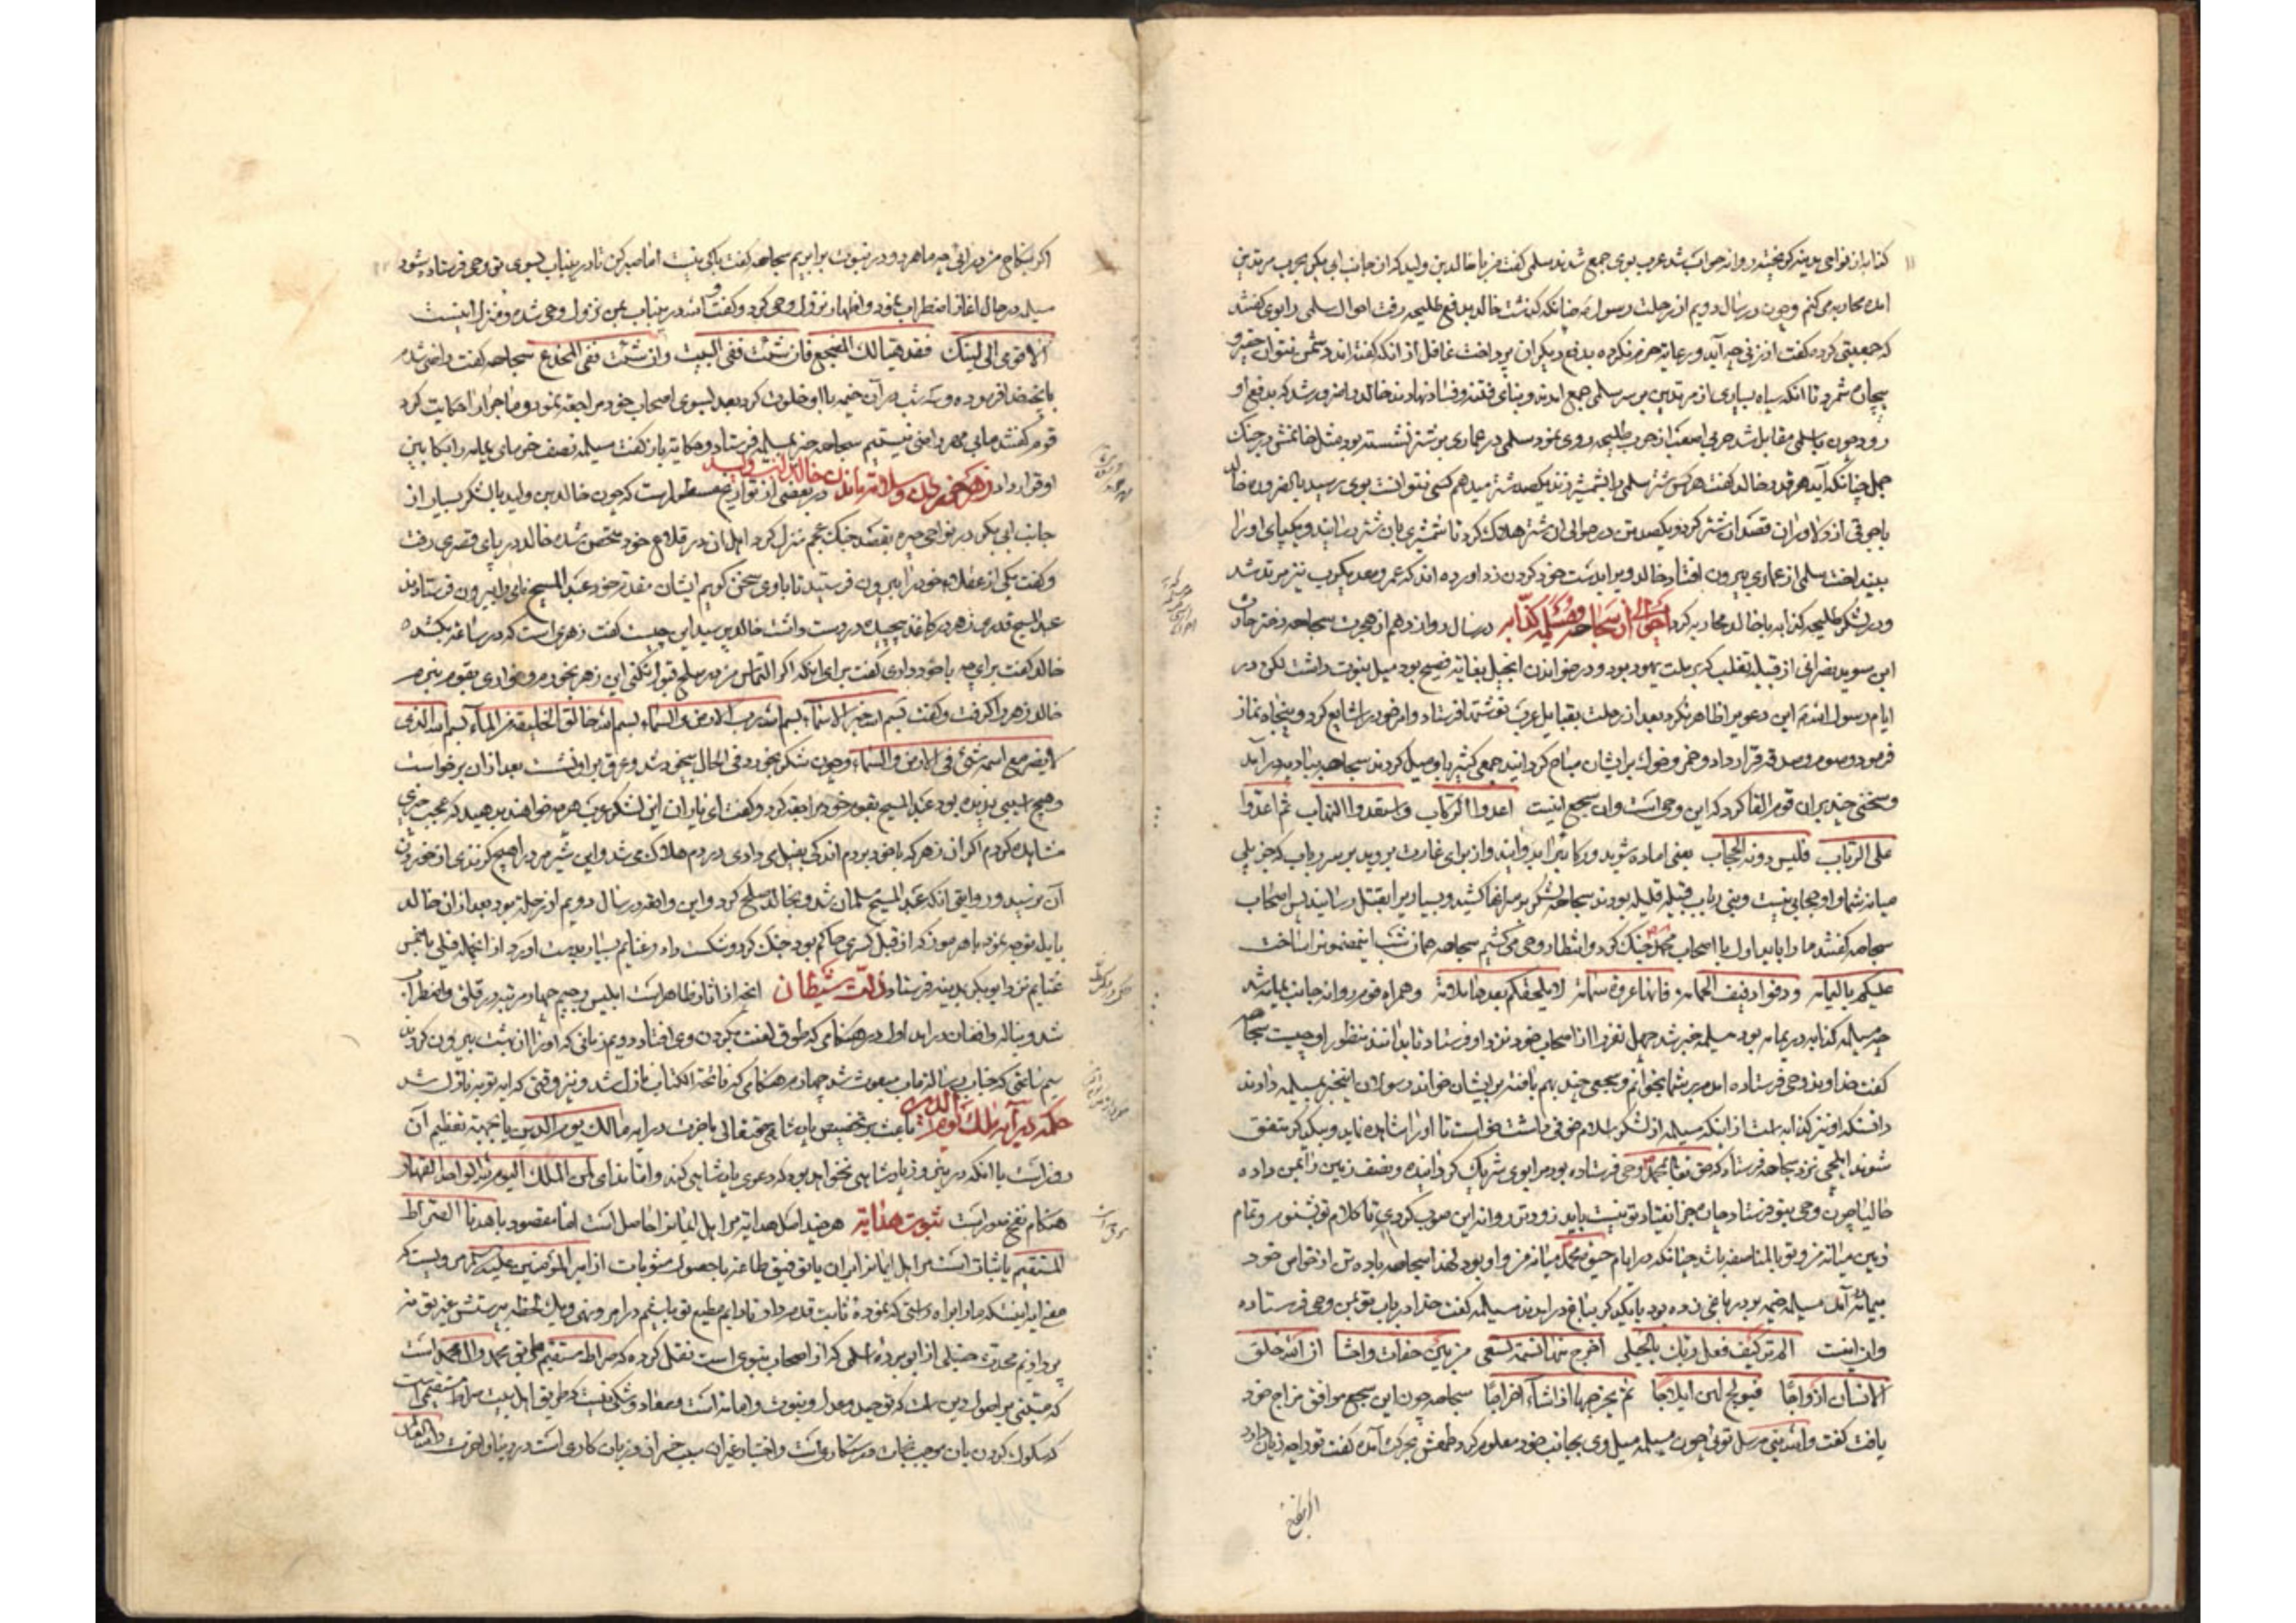 کذابه از نواحی مدینه گریخته روانه حواب شد عرب بوی جمع شدند سلمی گفت من با خالد بن ولید که از جانب ابی بکر بحرب مرتدین
آمده محاربه می کنم و چون در سال دویم از رحلت رسول چنانکه گذشت خالد بدفع طلیحه رفت احوال سلمی را بوی گفتند
که جمعیتی کرده گفت از زنی چه آید و رعایة حزم نکرده بدفع دیگران پرداخت غافل از آنکه گفته اند دشمن نتوان حقیر و
بیچاره شمرد تا آنکه سپاه بسیاری از مرتدین بر سر سلمی جمع آمدند و بنای فتنه و فساد نهادند خالد را ضرور شد که بدفع او
رود چون با سلمی مقابل شد حربی اصعب از حرب طلیحه روی نمود سلمی در عماری بر شتر نشسته بود مثل خاتمش در جنگ
جمل چنانکه آید هر قدر خالد گفت هر کس شتر سلمی را بشمشیر زند یکصد شتر میدهم کسی نتوانست بوی رسید بالضروره خالد
با جوقی از دلاوران قصد آن شتر کرد و یکصد تن در حوالی آن شتر هلاک کرد تا شمشیری بآن شتر رسانید و یکپای او را
بینداخت سلمی از عماری بیرون افتاد خالد ویرا بدست خود گردن زد آورده اند که عمرو معدیکرب نیز مرتد شد
و در لشکر طلیحه کذابه با خالد محاربه کرد احوال سجاحه و مسیلمه کذابه در سال دوازدهم از هجرت سجاحه دختر حارث
ابن سوید نصرانی از قبیله تغلب که بر ملت یهود بود و در خواندن انجیل بغایة فصیح بود میل بنبوت داشت لکن در
ایام رسول این دعوی را ظاهر نکرد بعد از رحلت بقبایل عرب نوشتها فرستاد و امر خود را شایع کرد و پنجاه نماز
فرمود و صوم و صدقه قرار داد و خمر و خوک بر ایشان مباح گردانید جمعی کثیر باو میل کردند سجاحه
و سخنی چند بر آن قوم القا کرد که این وحی است و آن سجع اینست اعدوا الرکاب و استعدوا النهاب ثم اغدوا
علی الرباب فلیس دونه الحجاب یعنی آماده شوید و رکائب را بدوانید و از برای غارت بروید بر سر رباب که
میانه شما و او حجابی نیست و بنی رباب قبیله قلیله بودند سجاحه لشکر بر سر آنها کشید و بسیاری را بقتل رسانید پس اصحاب
سجاحه گفتند ما را باید اول با اصحاب محمد جنگ کرد و انتظار وحی می کشیم سجاحه همان شب این مضمون را ساخت
علیکم بالیمامه و دفوا دفیف الحمامه فانها غزوة صرامه لا یلحقکم بعدها ملامة و همراه قوم روانه جانب یمامه شد
چه مسیلمه کذابه در یمامه بود مسیلمه خبر شد چهل نفر را از اصحاب خود نزد او فرستاد تا بدانند منظور او چیست سجاحه
گفت خداوند وحی فرستاده آمدم بر شما بخوانم و سجعی چند بهم بافته بر ایشان خواند رسولان این خبر بمسیلمه دادند
دانست که او نیز کذابه است از اینکه مسیلمه از لشکر اسلام خوفی داشت خواست تا او را مشاهده نماید و بیکدیگر متفق
شوند ایلچی نزد سجاحه فرستاد که حق تعالی بمحمد وحی فرستاده بود مرا بوی شریک گردانیده و نصف زمین را بمن داده
حالیا چون وحی بتو فرستاد چاره جز انقیاد تو نیست باید زودتر روانه این صوب گردی تا کلام تو بشنوم و تمام
زمین میانه من و تو بالمناصفه باشد چنانکه در ایام حیوة محمد میانه من و او بود لهذا سجاحه با ده تن از خواص خود
بیمامه آمد مسیلمه خیمه بود در باغی زده بود با یکدیگر بباغ درآمدند مسیلمه گفت خدا در باب تو بمن وحی فرستاده
و آن اینست الم تر کیف فعل ربک بالحبلی اخرج منها نسمة تسعی من بین صفاق و احشا ان الله خلق
الانسان ازواجا فیولج لهن ایلاجا ثم یخرجها اذا شاء اخراجا سجاحه چون این سجع موافق مزاج خود
یافت گفت والله نبی مرسل توئی چون مسیلمه میل وی بجانب خود معلوم کرد طمعش بحرکت آمده گفت ترا چه زیان دارد
اگر بنکاح من درآئی چه ما هر دو در نبوت برابریم سجاحه گفت باکی نیست اما صبر کن تا در این باب بسوی من وحی فرستاده شود
مسیلمه در حال آغاز اضطراب نمود و اظهار نزول وحی کرد و گفت در این باب بمن نزول وحی شده و منزل اینست
الا قومی الی فقد هیا لک المضجع فان شئت ففی البیت وان شئت ففی المخدع سجاحه گفت راضی شدم
بآنچه خدا فرموده و سه شب در آن خیمه با او خلوت کرد بعد بسوی اصحاب خود مراجعه نمود و ماجرا را حکایت کرد
قوم گفتند ما بی مهر راضی نیستیم سجاحه خبر بمسیلمه فرستاد و حکایة باز گفت مسیلمه نصف خرمای یمامه را بکابین
او قرار داد زهر خوردن و سلامت ماندن خالد بن ولید در بعضی از تواریخ مسطور است که چون خالد بن ولید با لشکر بسیار از
جانب ابی بکر در نواحی حیره بقصد جنگ عجم منزل کرد اهل آن در قلاع خود متحصن شده خالد در پای قصری رفت
و گفت یکی از عقلاء خود را بیرون فرستید تا با وی سخن گویم ایشان مقدم خود عبد المسیح نامی را بیرون فرستادند
عبد المسیح قدری زهر در کاغذ پیچیده در دست داشت خالد پرسید این چیست گفت زهری است که در ساعة بکشد
خالد گفت برای چه با خود داری گفت برای اینکه اگر التماس من در صلح قبول نکنی این زهر بخورم و خواری بقوم نبرم
خالد زهر را گرفت و گفت بسم الله خیر الاسماء بسم الله رب الارض و السماء بسم الله خالق الخلیقة من الماء بسم الله الذی
لا یضر مع اسمه شئ فی الارض و السماء و چون شکر بخورد و فی الحال بیخود شد و عرق بر او نشست بعد از آن برخواست
و هیچ آسیبی ندیده بود عبد المسیح بقوم خود مراجعه کرد و گفت ای یاران این لشکر عرب هر چه خواهند بدهید که عجب چیزی
مشاهده کردم اگر از آن زهر که با خود بردم اندکی بفیل می دادی در دم هلاک می شد و این شیرمرد را هیچ گزندی از خوردن
آن نرسید و روایتی آنکه عبد المسیح مسلمان شد و بخالد صلح کرد و این واقعه در سال دویم از رحلة بود بعد از آن خالد
بابله توجه نمود با هرمز که از قبل کسری حاکم بود جنگ کرد و شکست داد و غنایم بسیار بدست آورد از آنجمله فیلی با خمس
غنایم نزد ابوبکر بمدینه فرستاد ذلت شیطان آنچه از آثار ظاهر است ابلیس رجیم چهار مرتبه در قلق و اضطراب
شد و بناله و افغان درآمد اول در هنگامی که طوق لعنت بگردن وی افتاد دویم زمانی که او را از بهشت بیرون کردند
سیم ساعتی که جناب رسالتمآب مبعوث شد چهارم هنگامی که فاتحة الکتاب نازل شد و نیز وقتی که آیه توبه نازل شد
حکمة در آیه مالک یوم الدین باعث بر تخصیص پادشاهی حقتعالی بآخرت در آیه مالک یوم الدین یا بجهة تعظیم آن
روز است یا آنکه در بروز پادشاهی نخواهد بود که دعوی پادشاهی کند و اما ندای لمن الملک الیوم لله الواحد القهار
هنگام نفخ صور است ثبوت هدایة هر چند اصل هدایة مر اهل ایمان را حاصل است اما مقصود باهدنا الصراط
المستقیم یا ثبات است مر اهل ایمان را بر آن یا توفیق طاعة یا حصول مثوبات از امیر المؤمنین علیه السلام مرویست که
معنی آیه اینست که ما را براه راستی که نموده ثابت قدم دار تا دایم مطیع تو باشیم در امر و نهی و یک لحظه بپرستش غیر تو نپردازیم
محدث حنبلی از ابو برده اسلمی که از اصحاب نبوی است نقل کرده که صراط مستقیم طریق محمد و آل محمد است
که مبتنی بر اصول دین است که توحید و عدل و نبوت و امامة است و معاد و شکی نیست که طریق اهل بیت صراط مستقیمی است
که سلوک کردن بآن موجب نجات و رستگاری است و اختیار غیر آن سبب خسران و زیان کاری است در دنیا و آخرت